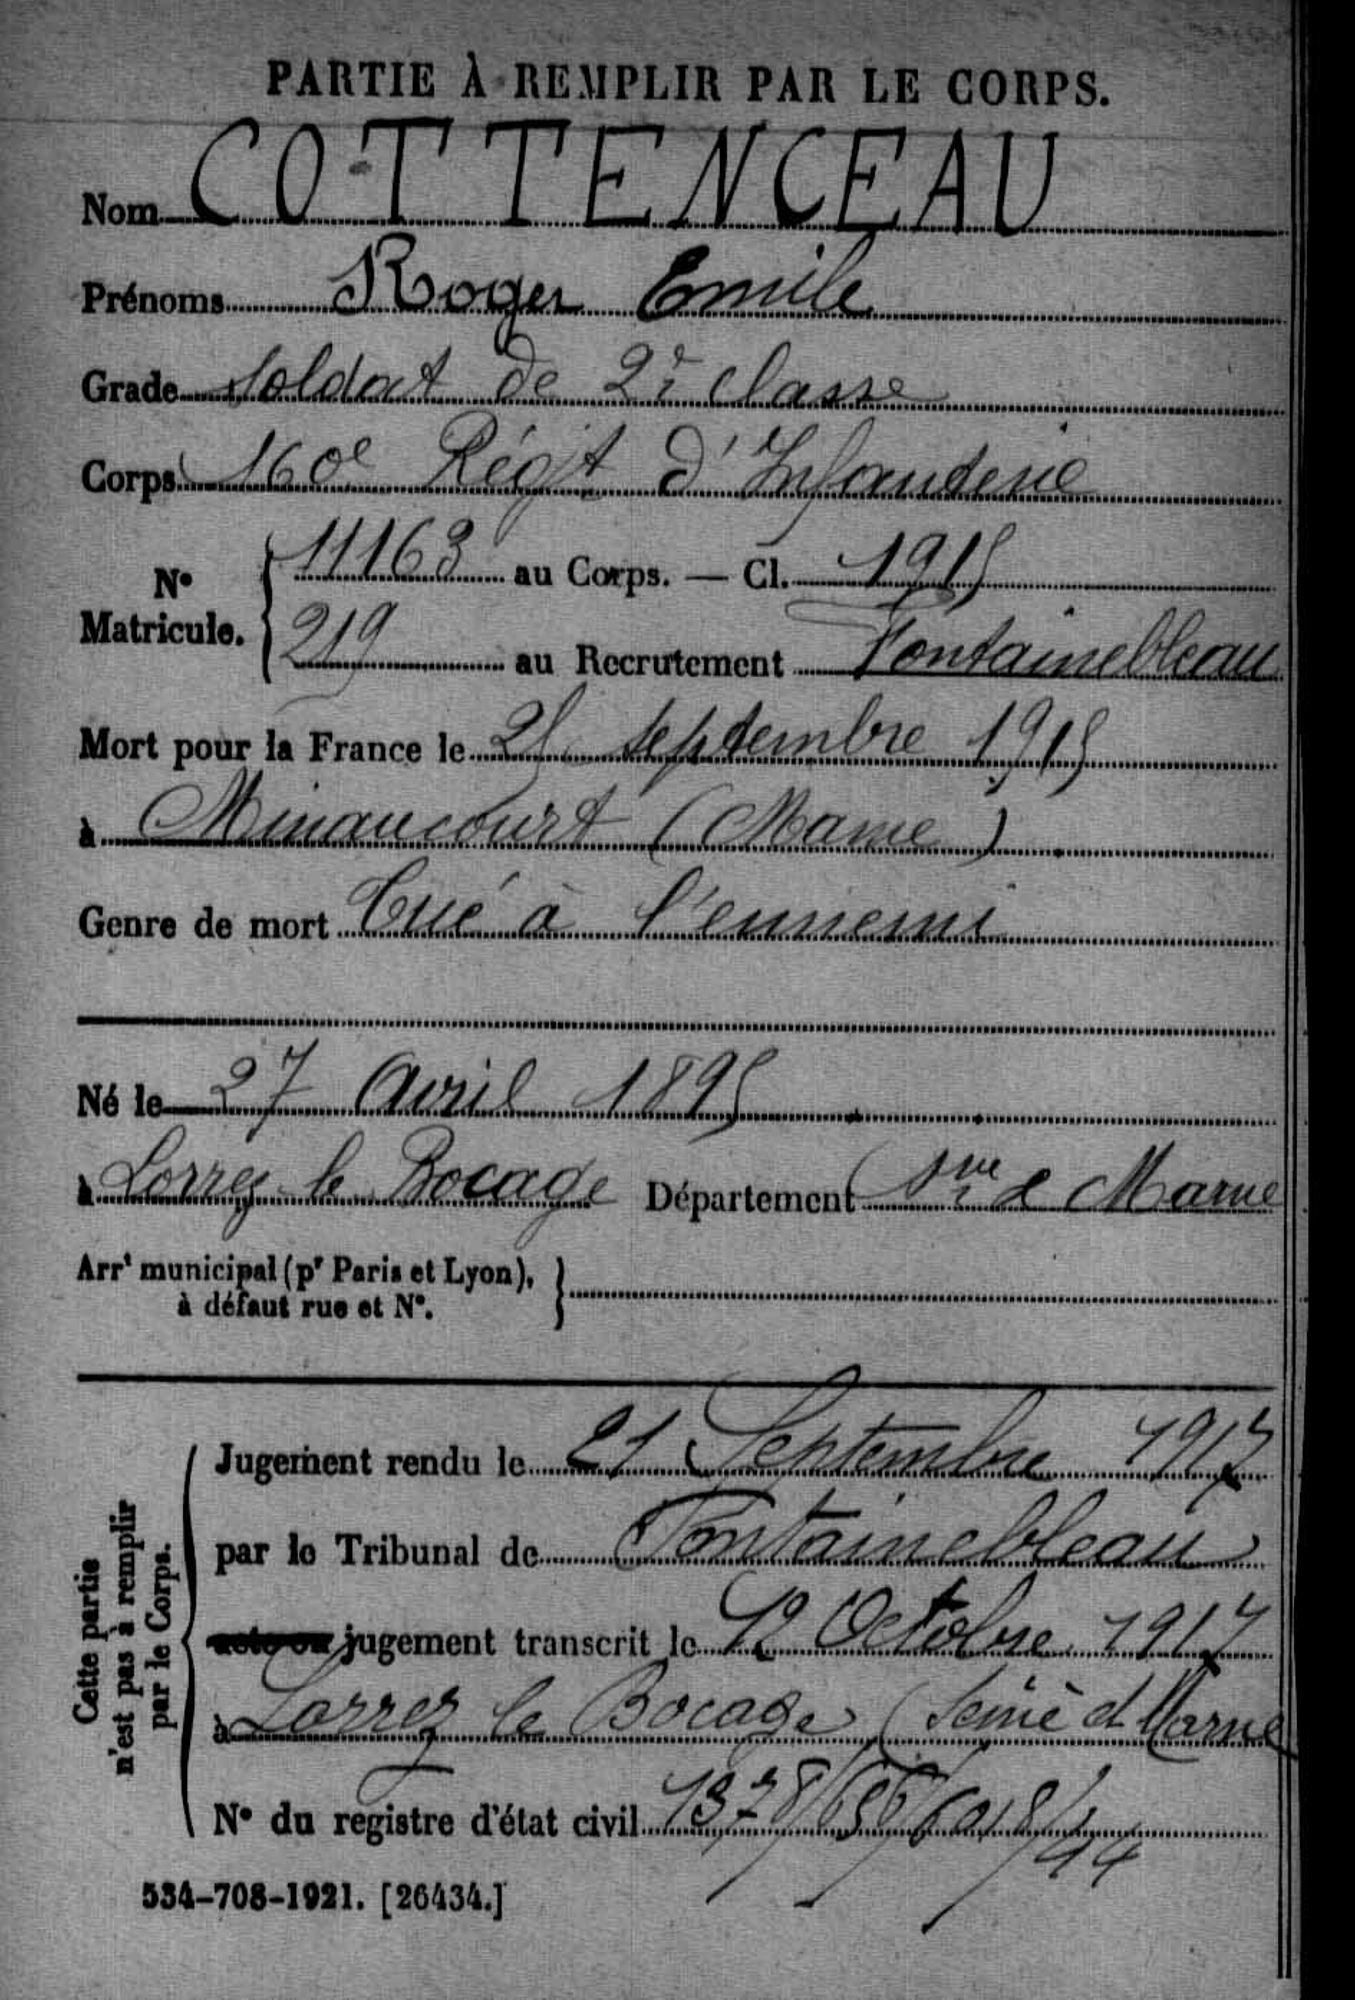 PARTIE À REMPLIR PAR LE CORPS.
Nom COTTENCEAU
Prénoms Roger Emile
Grade Soldat de 2e classe
Corps 160e Régt d'Infanterie
N° Matricule. 11163 au Corps. — Cl. 1915
219 au Recrutement Fontainebleau
Mort pour la France le 25 septembre 1915
à Minaucourt (Marne)
Genre de mort Tué à l'ennemi
Né le 27 Avril 1895
à Lorrez le Bocage Département Sne & Marne
Arrt municipal (pr Paris et Lyon),
à défaut rue et N°.
Cette partie
n'est pas à remplir
par le Corps.
Jugement rendu le 21 Septembre 1917
par le Tribunal de Fontainebleau
acte ou jugement transcrit le 12 Octobre 1917
à Lorrez le Bocage (Seine et Marne
N° du registre d'état civil
534-708-1921. [26434.]